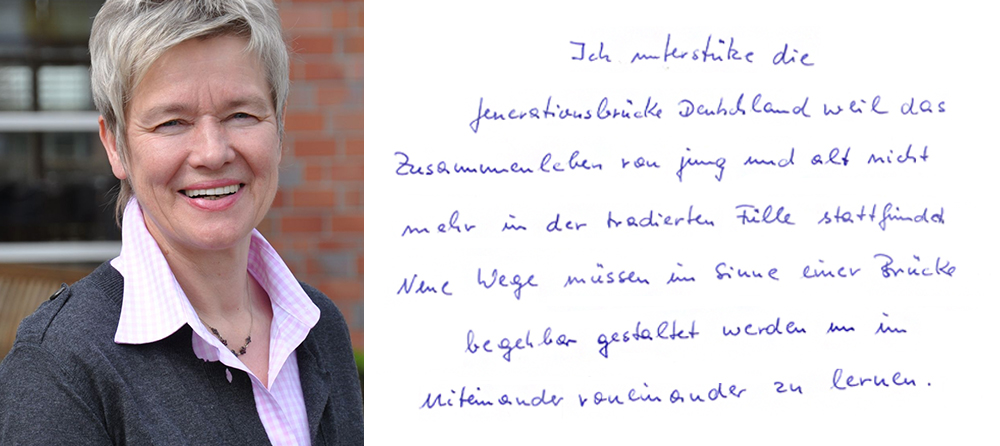 Ich unterstüke die
Generationsbrücke Deutschland weil das
Zusammenleben von jung und alt nicht
mehr in der tradierten Fülle stattfindet
Neue Wege müssen im Sinne einer Brücke
begehbar gestaltet werden um im
Miteinander voneinander zu lernen.